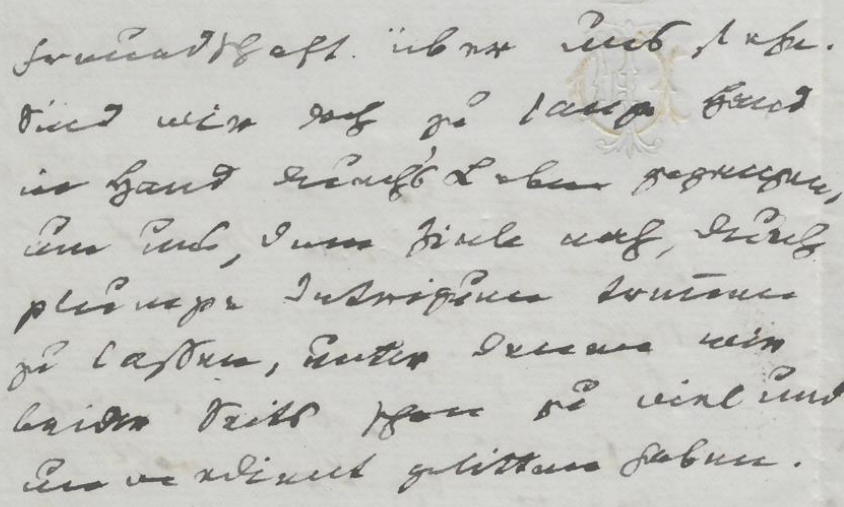 Freundschaft über uns steht.
Sind wir doch zu lange Hand
in Hand durch's Leben gegangen,
um uns, dem Ziele nah, durch
plumpe Intriguen trennen
zu lassen, unter denen wir
beider Seits schon zu viel und
unverdient gelitten haben.